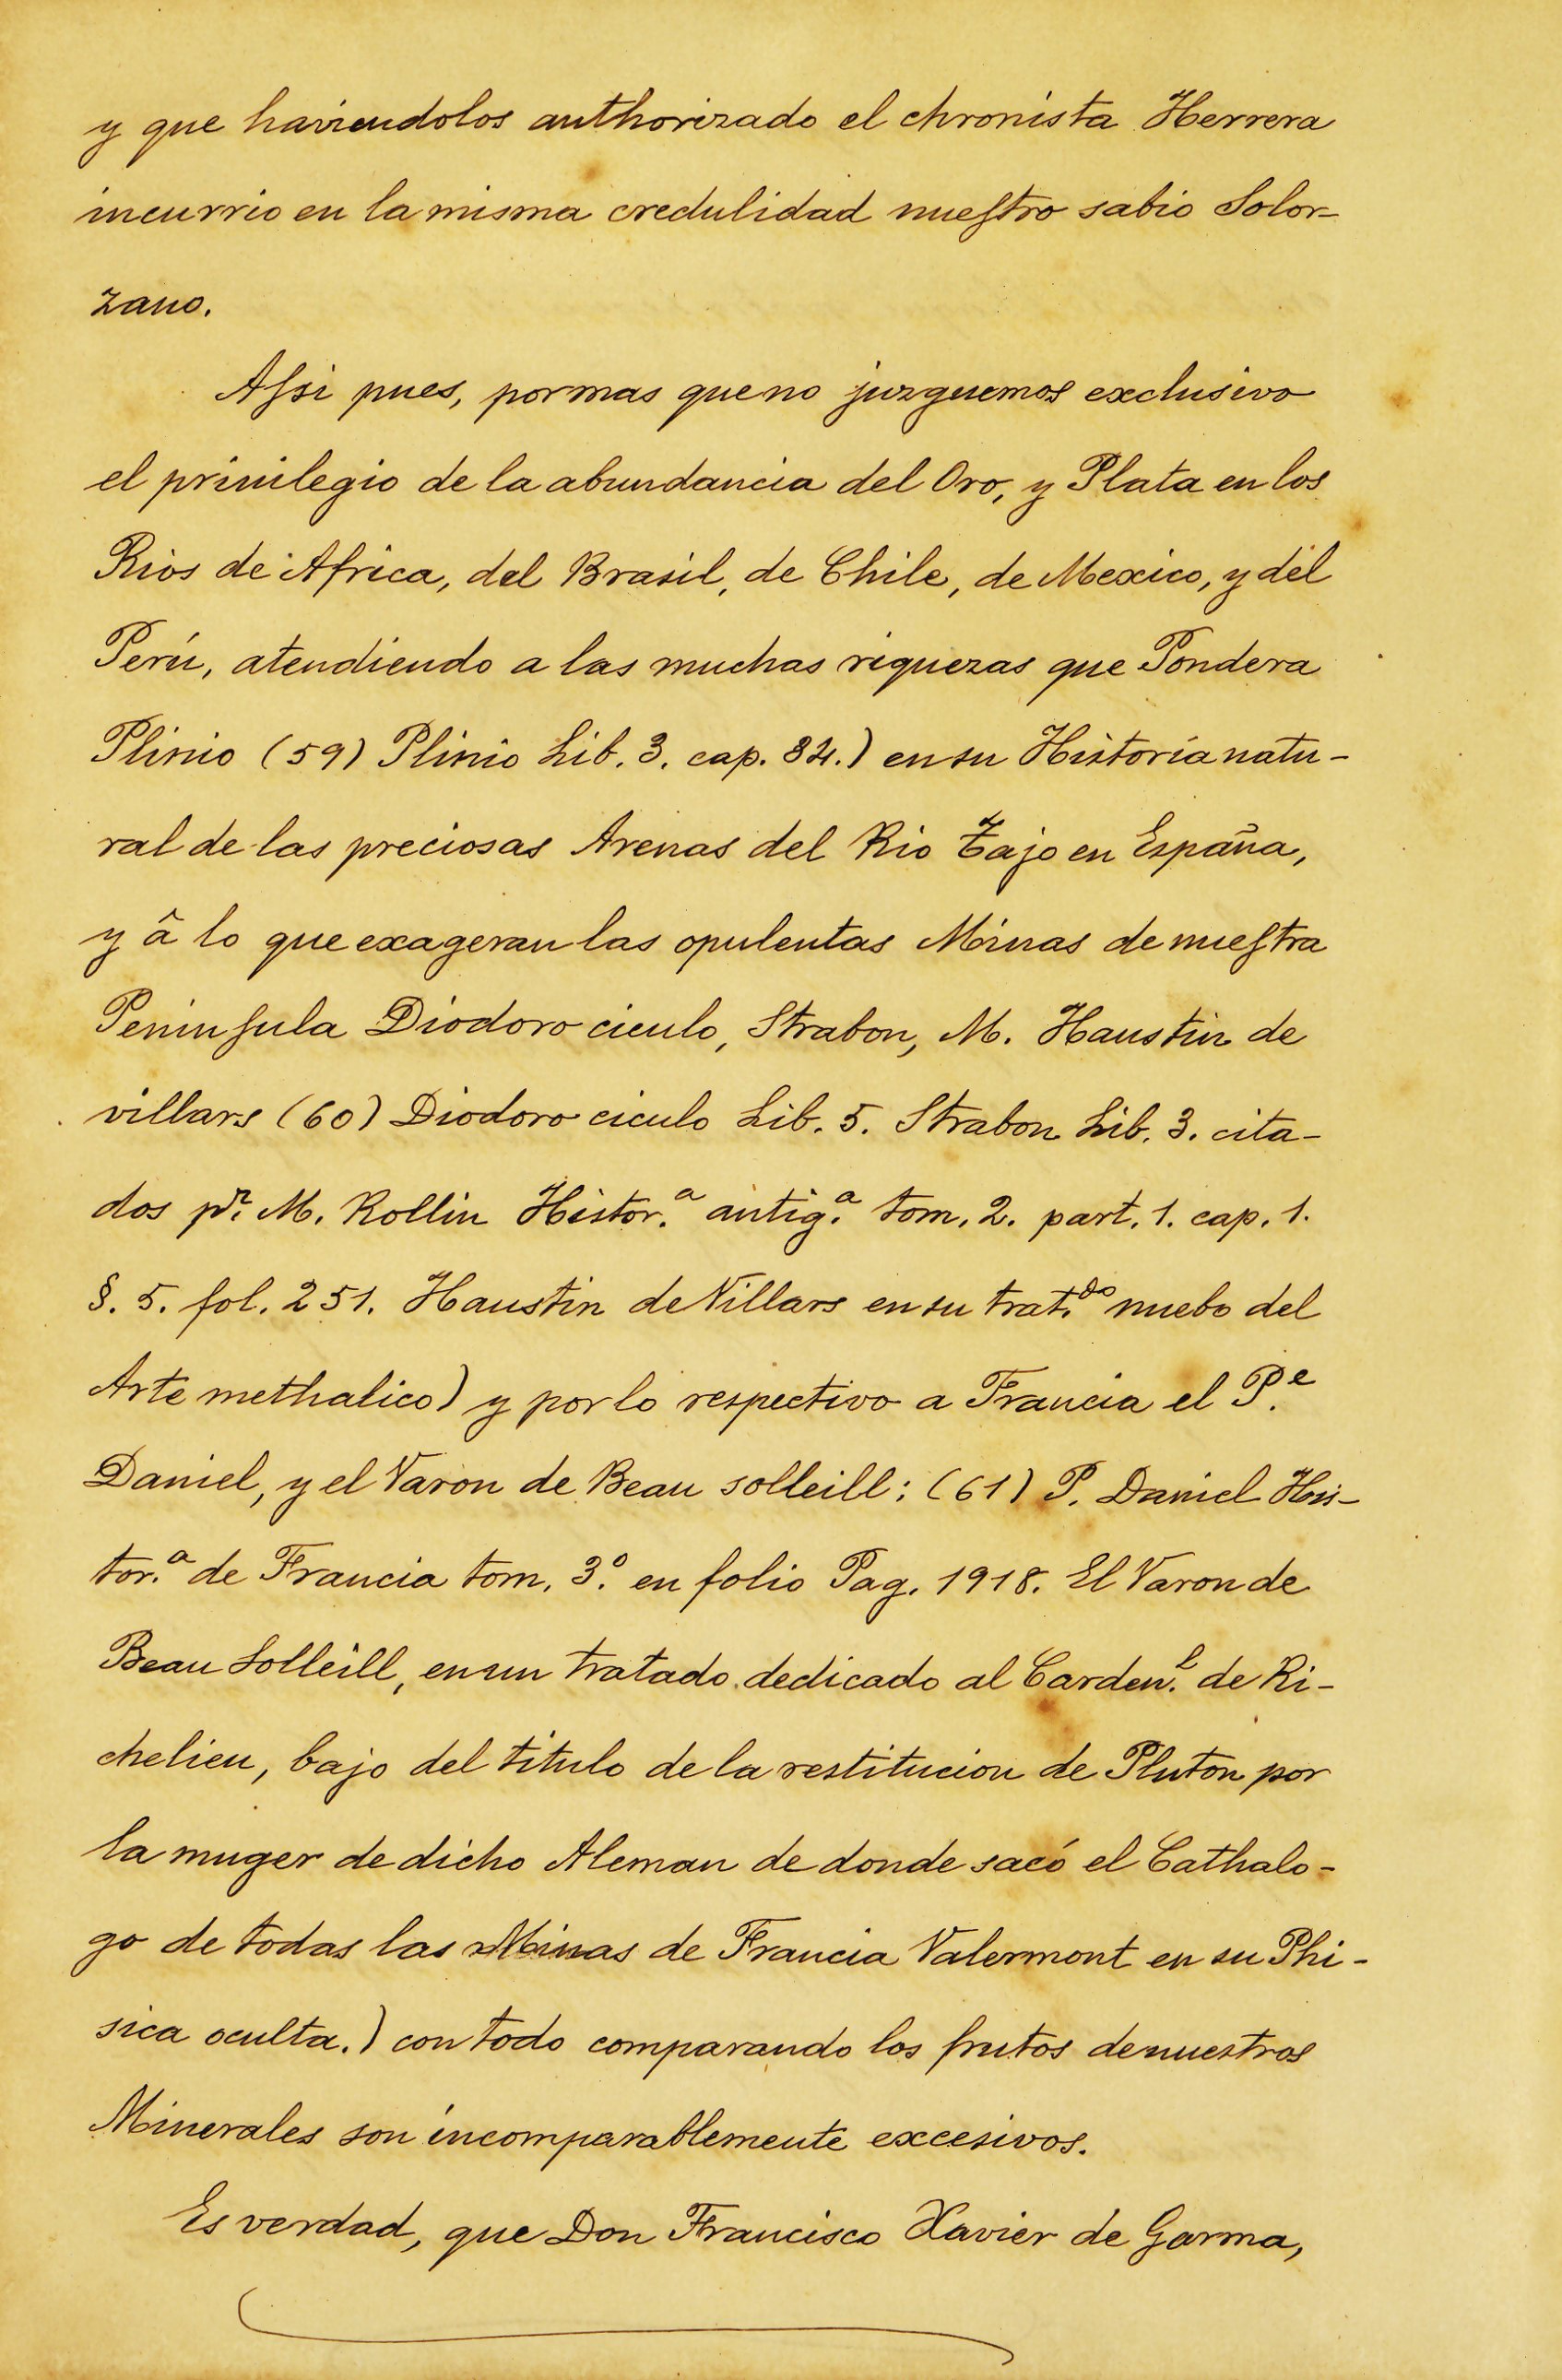 y que haviendolos authorizado el chronista Herrera
incurrio en la misma credulidad nuestro sabio Solor-
zano.
Assi pues, por mas que no juzguemos exclusivo
el privilegio de la abundancia del Oro, y Plata en los
Rios de Africa, del Brasil, de Chile, de Mexico, y del
Perú, atendiendo a las muchas riquezas que Pondera
Plinio (59) Plinio Lib. 3. cap. 84.) en su Historia natu-
ral de las preciosas Arenas del Rio Tajo en España,
y â lo que exageran las opulentas Minas de nuestra
Peninsula Diodoro ciculo, Strabon, M. Haustin de
villars (60) Diodoro ciculo Lib. 5. Strabon Lib. 3. cita-
dos pr. M. Rollin Histor.ª antig.ª tom. 2. part. 1. cap. 1.
§. 5. fol. 251. Haustin de Villars en su trat.do nuebo del
Arte methalico) y por lo respectivo a Francia el P.e
Daniel, y el Varon de Beau solleill: (61) P. Daniel His-
tor.ª de Francia tom. 3.º en folio Pag. 1918. El Varon de
Beau Solleill, en un tratado dedicado al Carden.l de Ri-
chelieu, bajo del titulo de la restitucion de Pluton por
la muger de dicho Aleman de donde sacó el Cathalo-
go de todas las Minas de Francia Valermont en su Phi-
sica oculta.) con todo comparando los frutos de nuestros
Minerales son incomparablemente excesivos.
Es verdad, que Don Francisco Xavier de Garma,